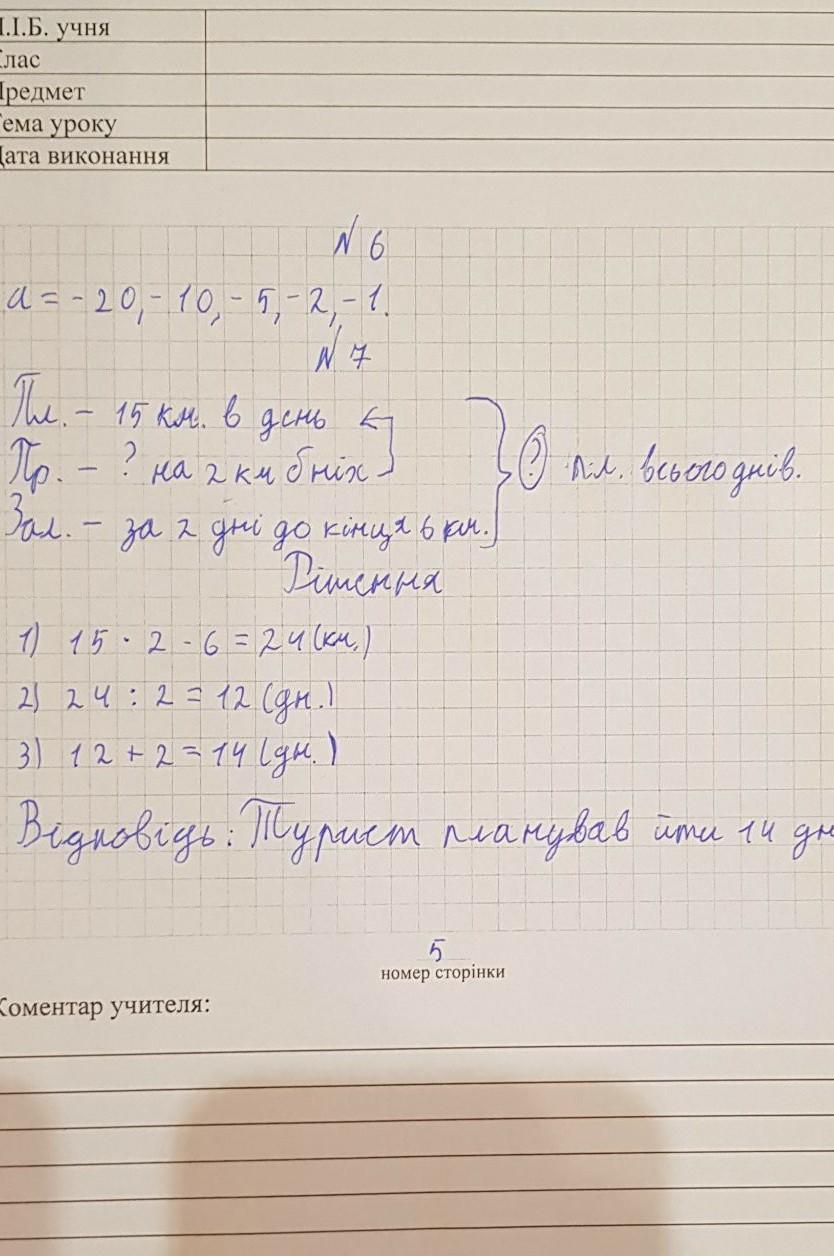 І.І.Б. учня
лас
редмет
ема уроку
ата виконання
N 6
a = - 20, - 10, - 5, - 2, - 1.
N 7
Пл. – 15 км. в день
Пр. – ? на 2 км бніх
? пл. всього днів.
Зал. – за 2 дні до кінця 6 км.
Рішення
1) 15 · 2 - 6 = 24 (км.)
2) 24 : 2 = 12 (дн.)
3) 12 + 2 = 14 (дн.)
Відповідь: Турист планував йти 14 дн
5
номер сторінки
Коментар учителя: